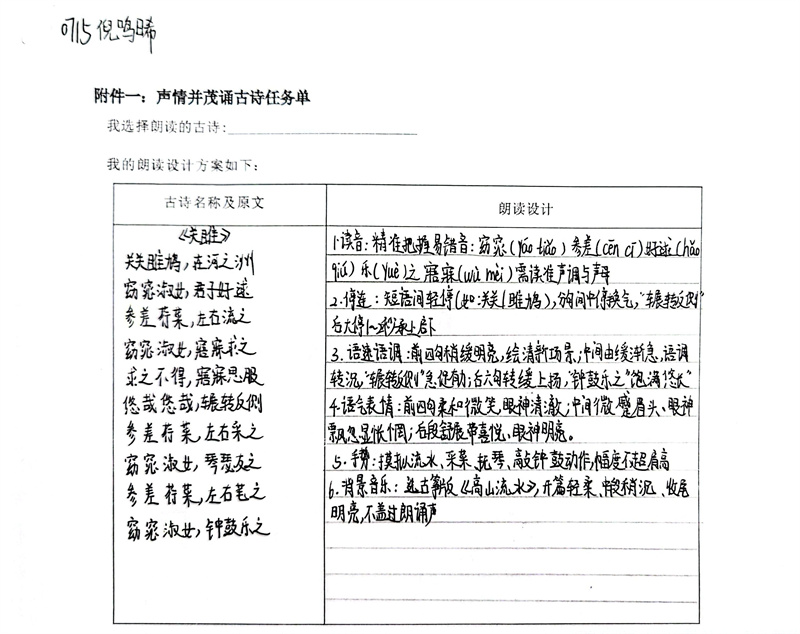 0715 倪鸣晞
附件一：声情并茂诵古诗任务单
我选择朗读的古诗：
我的朗读设计方案如下：
古诗名称及原文
《关雎》
关关雎鸠，在河之洲
窈窕淑女，君子好逑
参差荇菜，左右流之
窈窕淑女，寤寐求之
求之不得，寤寐思服
悠哉悠哉，辗转反侧
参差荇菜，左右采之
窈窕淑女，琴瑟友之
参差荇菜，左右芼之
窈窕淑女，钟鼓乐之
朗读设计
1.读音：精准把握易错音：窈窕(yǎo tiǎo) 参差(cēn cī) 好逑(hǎo
qiú) 乐(yuè)之 寤寐(wù mèi) 需读准声调与声母
2.停连：短语间轻停(如：关关|雎鸠)，分句间中停换气，"辗转反侧"
后大停1~2秒承上启下
3.语速语调：前四句稍缓明亮，绘清新场景；中间由缓渐急，语调
转沉，"辗转反侧"急促有力；后六句转缓上扬，"钟鼓乐之"饱满悠长
4.语气表情：前四句柔和微笑，眼神清澈；中间微蹙眉头、眼神
飘忽显怅惘；后段舒展带喜悦、眼神明亮。
5.手势：模拟流水、采菜、抚琴、敲钟鼓动作，幅度不超肩高
6.背景音乐：选古筝版《高山流水》，开篇轻柔、中段稍沉、收尾
明亮，不盖过朗诵声